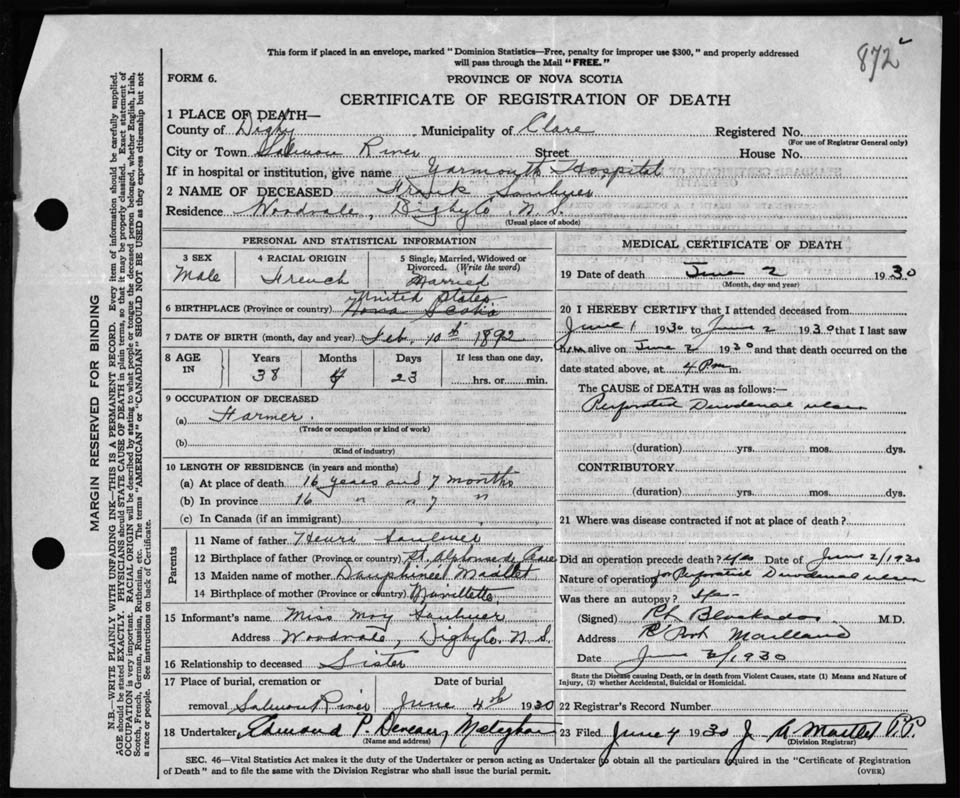 872
This form if placed in an envelope, marked "Dominion Statistics—Free, penalty for improper use $300," and properly addressed
will pass through the Mail "FREE."
FORM 6.
PROVINCE OF NOVA SCOTIA
CERTIFICATE OF REGISTRATION OF DEATH
MARGIN RESERVED FOR BINDING
N.B.—WRITE PLAINLY WITH UNFADING INK—THIS IS A PERMANENT RECORD. Every item of information should be carefully supplied.
AGE should be stated EXACTLY. PHYSICIANS should STATE CAUSE OF DEATH in plain terms, so that it may be properly classified. Exact statement of
OCCUPATION is very important. RACIAL ORIGIN will be described by stating to what people or tongue the deceased person belonged, whether English, Irish,
Scotch, French, German, Russian, Ruthenian, etc. The terms "AMERICAN" or "CANADIAN" SHOULD NOT BE USED as they express citizenship but not
a race or people. See instructions on back of Certificate.
1 PLACE OF DEATH—
County of Digby Municipality of Clare Registered No.
(For use of Registrar General only)
City or Town Salmon River Street House No.
If in hospital or institution, give name Yarmouth Hospital
2 NAME OF DECEASED Frank Saulnier
Residence Woodvale, Digby Co N.S.
(Usual place of abode)
PERSONAL AND STATISTICAL INFORMATION
3 SEX Male
4 RACIAL ORIGIN French
5 Single, Married, Widowed or
Divorced. (Write the word)
Married
United States
6 BIRTHPLACE (Province or country) Nova Scotia
7 DATE OF BIRTH (month, day and year) Feb. 10th 1892
8 AGE IN Years Months Days If less than one day,
38 4 23 hrs. or min.
9 OCCUPATION OF DECEASED
(a) Farmer.
(Trade or occupation or kind of work)
(b)
(Kind of industry)
10 LENGTH OF RESIDENCE (in years and months)
(a) At place of death 16 years and 7 months
(b) In province 16 " " 7 "
(c) In Canada (if an immigrant)
Parents
11 Name of father Henri Saulnier
12 Birthplace of father (Province or country) St. Alphonse de Clare
13 Maiden name of mother Dauphinee
14 Birthplace of mother (Province or country)
15 Informant's name Miss May Saulnier
Address Woodvale, Digby Co. N.S.
16 Relationship to deceased Sister
17 Place of burial, cremation or Date of burial
removal Salmon River June 4th 1930
18 Undertaker, Edmond P. Deveau, Meteghan
(Name and address)
MEDICAL CERTIFICATE OF DEATH
19 Date of death June 2 1930
(Month, day and year)
20 I HEREBY CERTIFY that I attended deceased from
June 1 1930 to June 2 1930 that I last saw
him alive on June 2 1930 and that death occurred on the
date stated above, at 4 Pm m.
The CAUSE OF DEATH was as follows:—
Perforated Duodenal ulcer
(duration) yrs. mos. dys.
CONTRIBUTORY
(duration) yrs. mos. dys.
21 Where was disease contracted if not at place of death?
Did an operation precede death? Yes Date of June 2/1930
Nature of operation for Perforated Duodenal ulcer
Was there an autopsy?
(Signed) M.D.
Address Port Maitland
Date June 2/1930
State the Disease causing Death, or in death from Violent Causes, state (1) Means and Nature of
Injury, (2) whether Accidental, Suicidal or Homicidal.
22 Registrar's Record Number
23 Filed June 4 1930 J. A.
(Division Registrar)
SEC. 46—Vital Statistics Act makes it the duty of the Undertaker or person acting as Undertaker to obtain all the particulars required in the "Certificate of Registration
of Death" and to file the same with the Division Registrar who shall issue the burial permit.
(OVER)